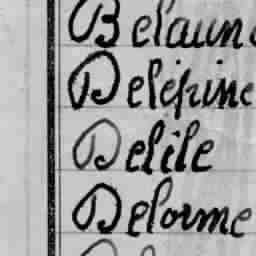 Belaun
Delépine
Delile
Delorme